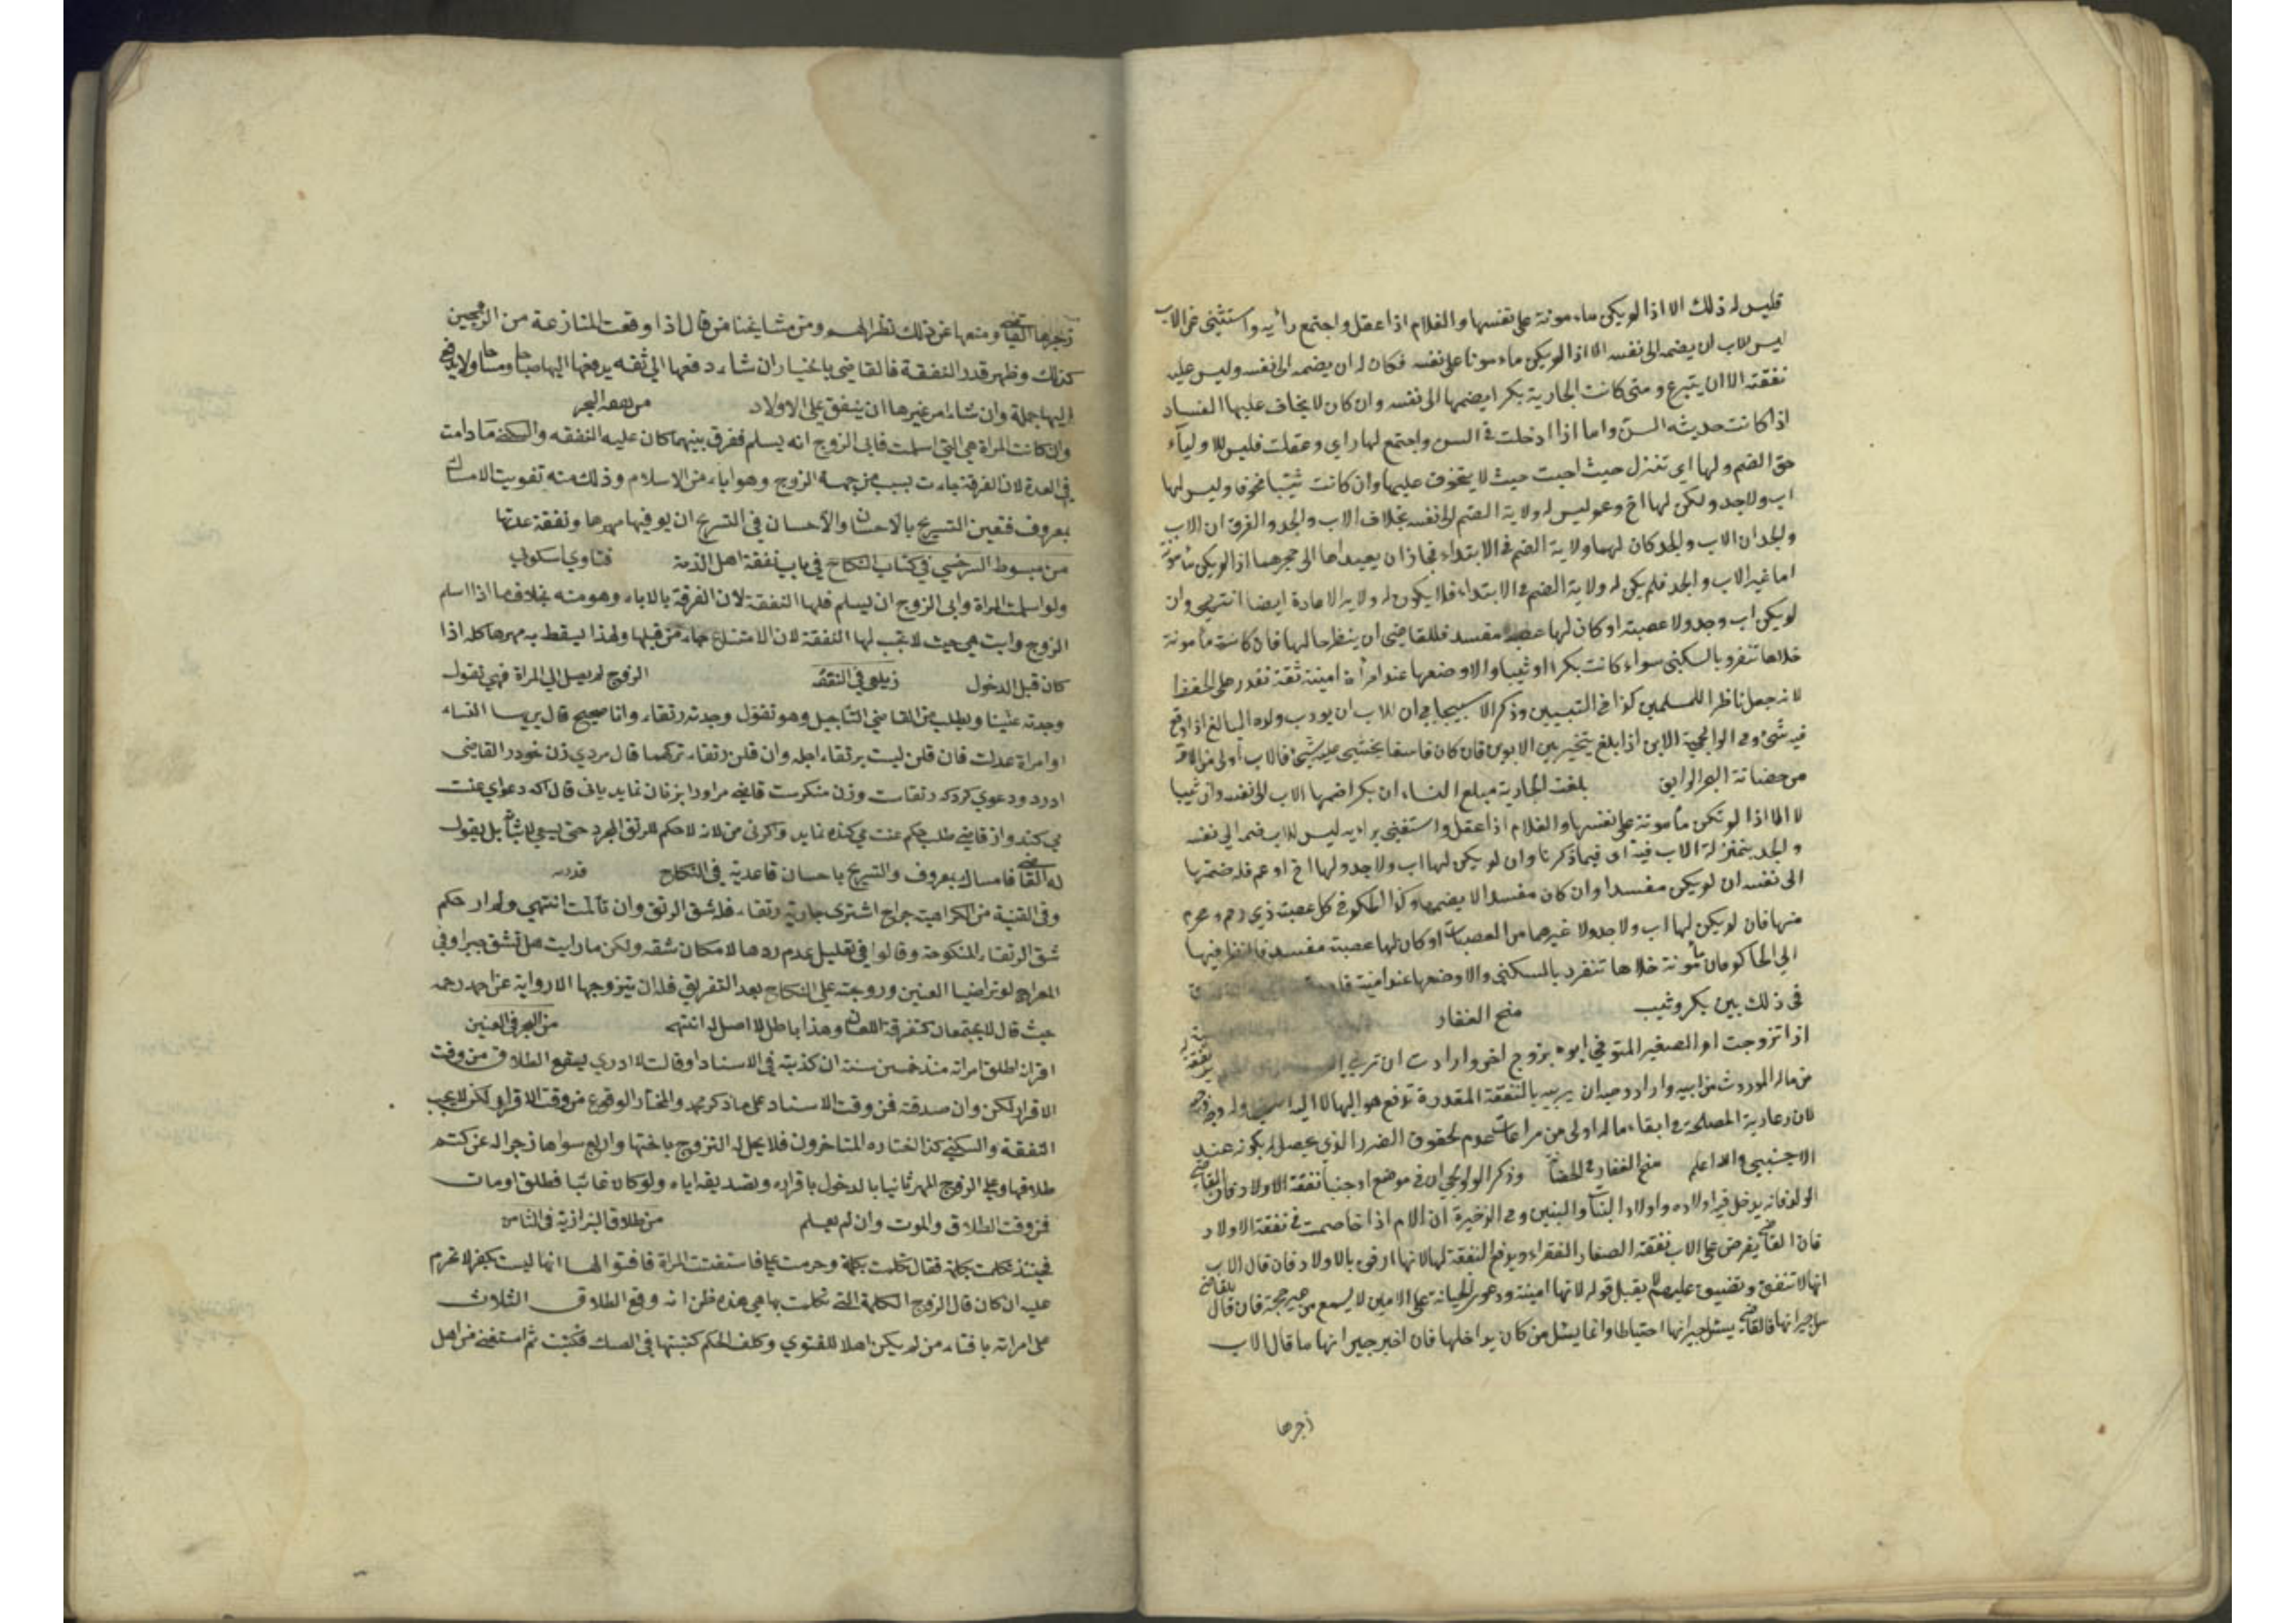 فليس له ذلك الا اذا لم يكن مامونة على نفسها والغلام اذا عقل واجتمع رأيه واستغنى عن الاب
ليس للاب ان يضمه الى نفسه الا اذا لم يكن مامونا على نفسه فكان له ان يضمه الى نفسه وليس عليه
نفقته الا ان يتبرع ومتى كانت الجارية بكرا يضمها الى نفسه وان كان لا يخاف عليها الفساد
اذا كانت حديثه السن واما اذا دخلت في السن واجتمع لها راي وعقلت فليس للاولياء
حق الضم ولها اي تنزل حيث احبت حيث لا يتخوف عليها وان كانت ثيبا مخوفا وليس لها
اب ولا جد ولكن لها اخ وعم ليس له ولاية الضم الى نفسه بخلاف الاب والجد والفرق ان الاب
والجد ان الاب والجد كان لهما ولاية الضم في الابتداء فجاز ان يعيداها الى حجرهما اذا لم يكن مأمونة
اما غير الاب والجد فلم يكن له ولاية الضم في الابتداء فلا يكون له ولاية الاعادة ايضا انتهى وان
لم يكن اب وجد ولا عصبته او كان لها عصبة مفسد فللقاضي ان ينظر حالها فان كانت مأمونة
خلاها تنفرد بالسكنى سواء كانت بكرا او ثيبا والا وضعها عند امرأة امينة ثقة تقدر على الحفظ
لانه جعل ناظرا للمسلمين كذا في التبيين وذكر الاسبيجابي ان للاب ان يودب ولده البالغ اذا وقع
فيه شئ وفي الولوالجية الابن اذا بلغ يتخير بين الابوين فان كان فاسقا يخشى عليه شئ فالاب أولى من الام
من حضانة البحر الرايق بلغت الجارية مبلغ النساء ان بكرا ضمها الاب الى نفسه وان ثيبا
لا الا اذا لم تكن مأمونة على نفسها والغلام اذا عقل واستغنى برايه ليس للاب ضمه الى نفسه
والجد بمنزلة الاب فيه اى فيما ذكرنا وان لم يكن لها اب ولا جد ولها اخ او عم فله ضمها
الى نفسه ان لم يكن مفسدا وان كان مفسدا لا يضمها وكذا الحكم في كل عصبة ذي رحم محرم
منها فان لم يكن لها اب ولا جد ولا غيرهما من العصبات او كان لها عصبة مفسد فالنظر فيها
الى الحاكم فان مأمونة خلاها تنفرد بالسكنى والا وضعها عند امينة
في ذلك بين بكر وثيب منح الغفار
اذا تزوجت ام الصغير المتوفي ابوه بزوج اخر وارادت ان تربي
من ماله الموروث من ابيه واراد وصيه ان يربيه بالنفقة المقدرة تدفع هو اليها لا اليه
لان رعاية المصلحة في ابقاء ماله اولى من مراعات عدم لحقوق الضرر الذي يحصل له بكونه عند
الاجنبي والله اعلم منح الغفار في الحضانة وذكر الولوالجي ان في موضع اوجبنا نفقة الاولاد
الولد فانه يدخل فيه اولاده واولاد البنات والبنين وفي الذخيرة ان الام اذا خاصمت في نفقة الاولاد
فان القاضي يفرض على الاب نفقة الصغار الفقراء ويدفع النفقة لها لانها ارفق بالاولاد فان قال الاب
انها لا تنفق وتضيق عليهم لا يقبل قوله لانها امينة ودعوى الخيانة على الامين لا يسمع من غير حجة فان قال للقاضي
سل جيرانها فالقاضي يسئل جيرانها احتياطا وانما يسئل من كان يداخلها فان اخبر جيرانها ما قال الاب
زجرها
زجرها القاضي ومنعها عن ذلك نظرا لهم ومن مشايخنا من قال اذا وقعت المنازعة من الزوجين
كذلك وظهر قدر النفقة فالقاضي باختيار ان شاء دفعها الى ثقه يدفعها اليها صباحا ومساء ولا يدفع
اليها جملة وان شاء امر غيرها ان ينفق على الاولاد من نفقه البحر
وان كانت المراة هي التي اسلمت فابى الزوج انه يسلم ففرق بينهما كان عليه النفقه والسكنى ما دامت
في العدة لان الفرقة جاءت بسبب من جهة الزوج وهو اباء من الاسلام وذلك منه تفويت الامساك
بمعروف فتعين التسريح بالاحسان والاحسان في التسريح ان يوفيها مهرها ونفقة عدتها
من مبسوط السرخسي في كتاب النكاح في باب نفقة اهل الذمة فتاوي اسكوب
ولو اسلمت المراة وابى الزوج ان يسلم فلها النفقة لان الفرقة بالاباء وهو منه بخلاف ما اذا اسلم
الزوج وابت هي حيث لا تجب لها النفقة لان الامتناع جاء من قبلها ولهذا يسقط به مهرها كله اذا
كان قبل الدخول زيلعي في النفقة الزوج لم يصل الى المراة فهي تقول
وجدته عنينا ويطلب من القاضي التأجيل وهو تقول وجدته رتقاء وانا صحيح قال يريها النساء
او امراة عدلت فان قلن ليست برتقاء اجله وان قلن رتقاء تركهما قال مردي زن خود را القاضى
اورد ودعوي كرد كه رتقاست وزن منكرست قاضى مر اورا بزنان نمايد يانى قال اكه دعواي عنت
مي كند واز قاضي طلب حكم عنت مي كند نمايد واكرنى من لانه لا حكم للرتق المجرد بل يقول
له القاضي فامساك بمعروف والتسريح باحسان قاعدية في النكاح
وفي القنية من الكراهية جراح اشترى جارية رتقاء فله شق الرتق وان تألمت انتهى ولم ار حكم
شق الرتقاء المنكوحة وقالوا في تعليل عدم ردها لامكان شقه ولكن ما رايت هل تشق جبرا وفي
المعراج لو تراضيا العنين وزوجته على النكاح بعد التفريق فله ان يتزوجها الا رواية عن احمد رحمه
حيث قال لا يجتمعان كتفرقة اللعان وهذا باطل لا اصل له انتهى من البحر في العنين
اقر انه طلق امراته منذ خمسين سنة ان كذبته في الاسناد او قالت لا ادري يقع الطلاق من وقت
الاقرار لكن وان صدقته فمن وقت الاسناد على ما ذكر محمد والمختار الوقوع من وقت الاقرار لكن لا يجب
النفقة والسكنى كذا اختاره المتاخرون فلا يحل له التزوج باختها واربع سواها زجرا له عن كتم
طلاقها وعلى الزوج المهر ثانيا بالدخول باقراره وتصديقه اياه ولو كان غائبا فطلق او مات
فمن وقت الطلاق والموت وان لم يعلم من طلاق البزازية في الثامن
فحينئذ تكلمت بكلمة فقال تكلمت بكلمة وحرمت علي فاستفتت المراة فافتوا لها انها ليست بكفر لا تحرم
عليه ان كان قال الزوج الكلمة التي تكلمت بها هي هذه ظن انه وقع الطلاق الثلاث
على امراته بافتاء من لم يكن اهلا للفتوي وكلف الحكم كتبتها في الصك فكتبت ثم استفتى من اهل